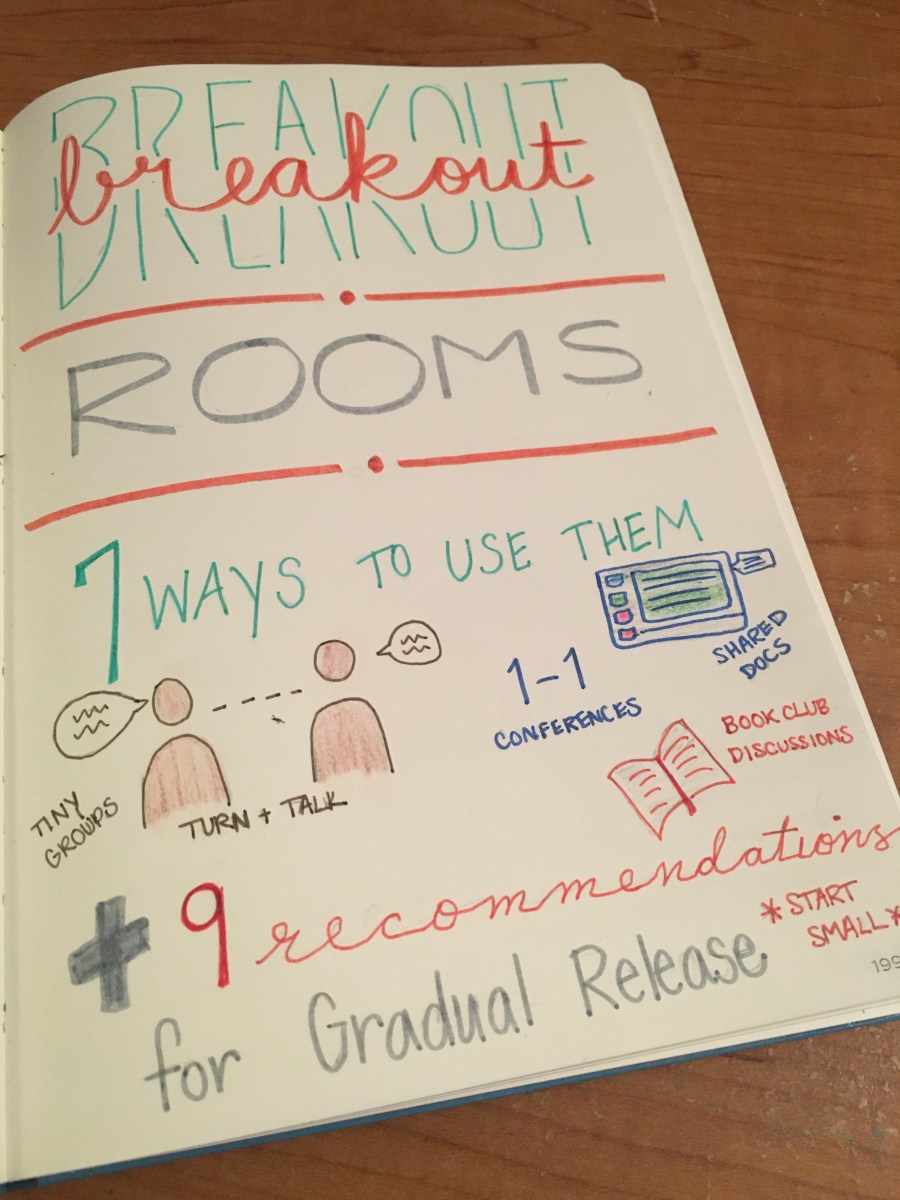 BREAKOUT
breakout
ROOMS
7 WAYS TO USE THEM
SHARED
DOCS
1-1
CONFERENCES
BOOK CLUB
DISCUSSIONS
TINY
GROUPS
TURN + TALK
+ 9 recommendations
*START
SMALL*
for Gradual Release
199